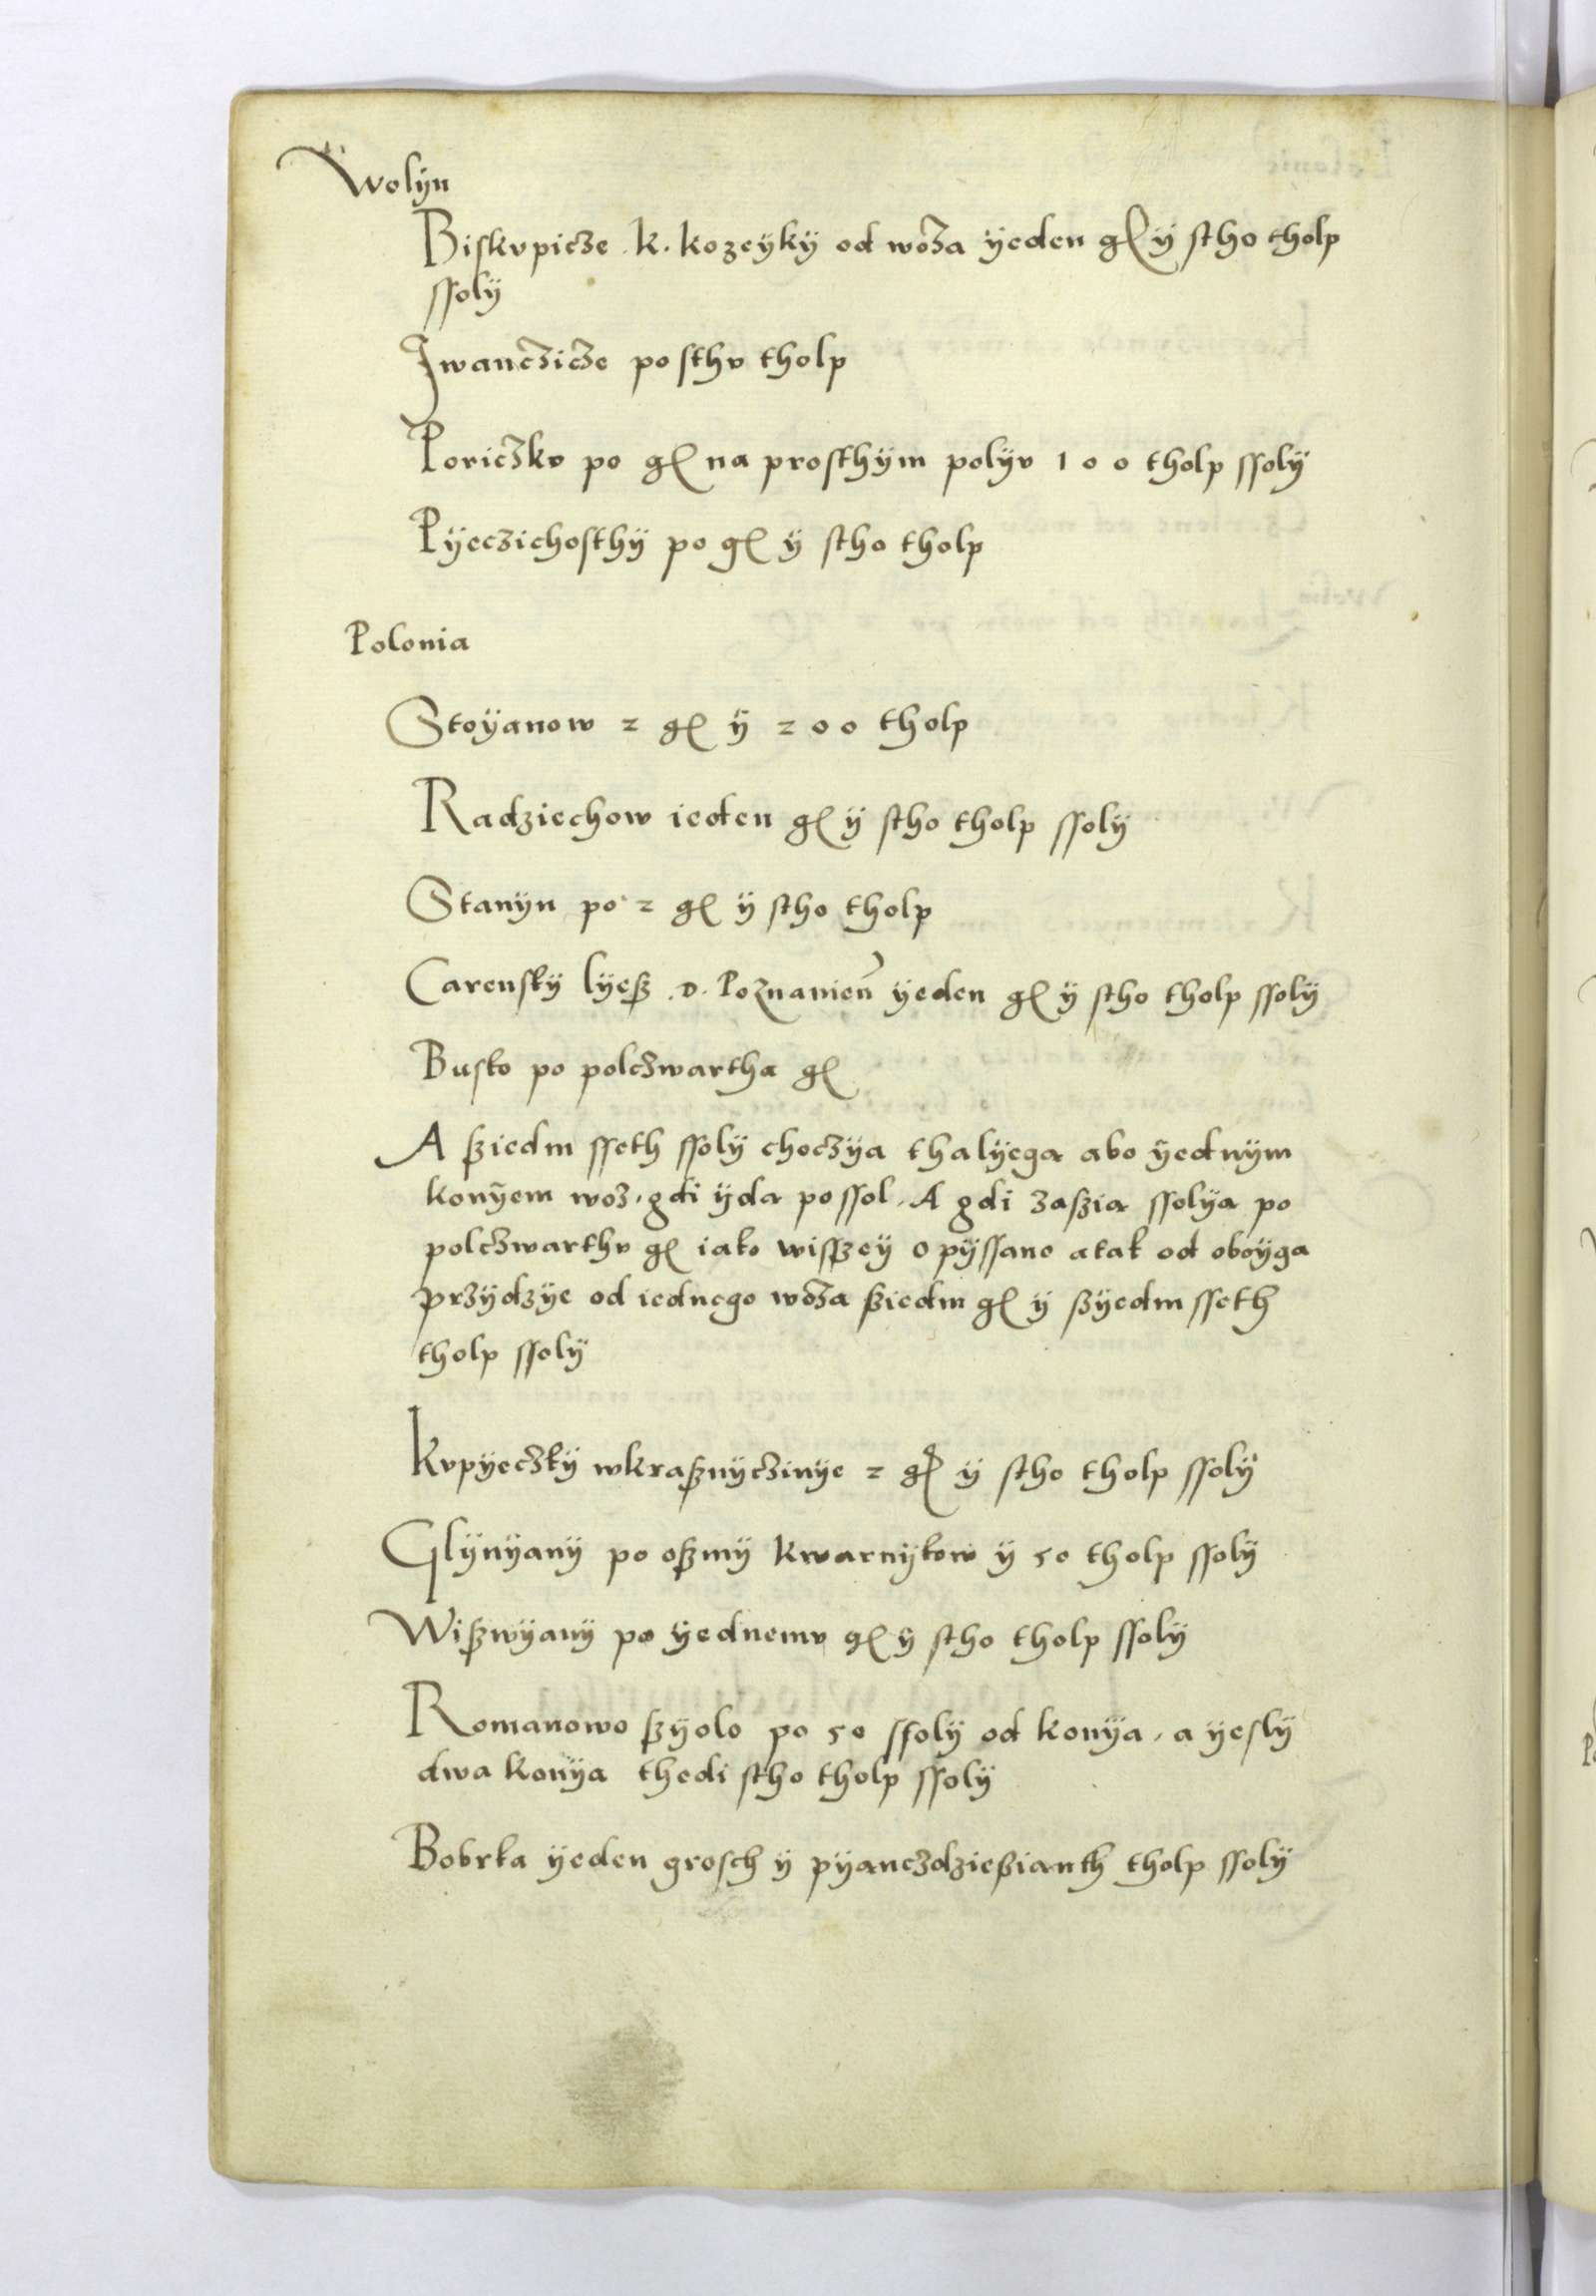 Wolÿn
Biskvpicze . k . kozeÿkÿ od woza ÿeden gſ ÿ stho tholp
ssolÿ
Jwanczicze po sthv tholp
Poriczkv po gſ na prosthÿm polÿv 100 tholp ssolÿ
Pÿeczichosthÿ po gſ ÿ stho tholp
Polonia
Stoÿanow 2 gſ ÿ 200 tholp
Radziechow ieden gſ ÿ stho tholp ssolÿ
Stanÿn po 2 gſ ÿ stho tholp
Carenskÿ lÿeß .D. Poznanien̄ ÿeden gſ ÿ stho tholp ssolÿ
Busko po polczwartha gſ
A ßiedm sseth ssolÿ choczÿa thalÿega abo ÿednÿm
konÿem woz, gdi ÿda po ssol. A gdi zaßia ssolÿa po
polczwarthv gſ iako wisszeÿ opÿssano a tak od oboÿga
przÿdzÿe od iednego woza ßiedm gſ ÿ ßÿedm sseth
tholp ssolÿ
Kvpÿeczkÿ wkraßnÿczinÿe 2 gſ ÿ stho tholp ssolÿ
Glÿnÿanÿ po oßmÿ kwarnÿkow ÿ 50 tholp ssolÿ
Wißwÿanÿ po ÿednemv gſ ÿ stho tholp ssolÿ
Romanowo ßÿolo po 50 ssolÿ od konÿa, a ÿeslÿ
dwa konÿa thedi stho tholp ssolÿ
Bobrka ÿeden grosch ÿ pÿanczdzießianth tholp ssolÿ